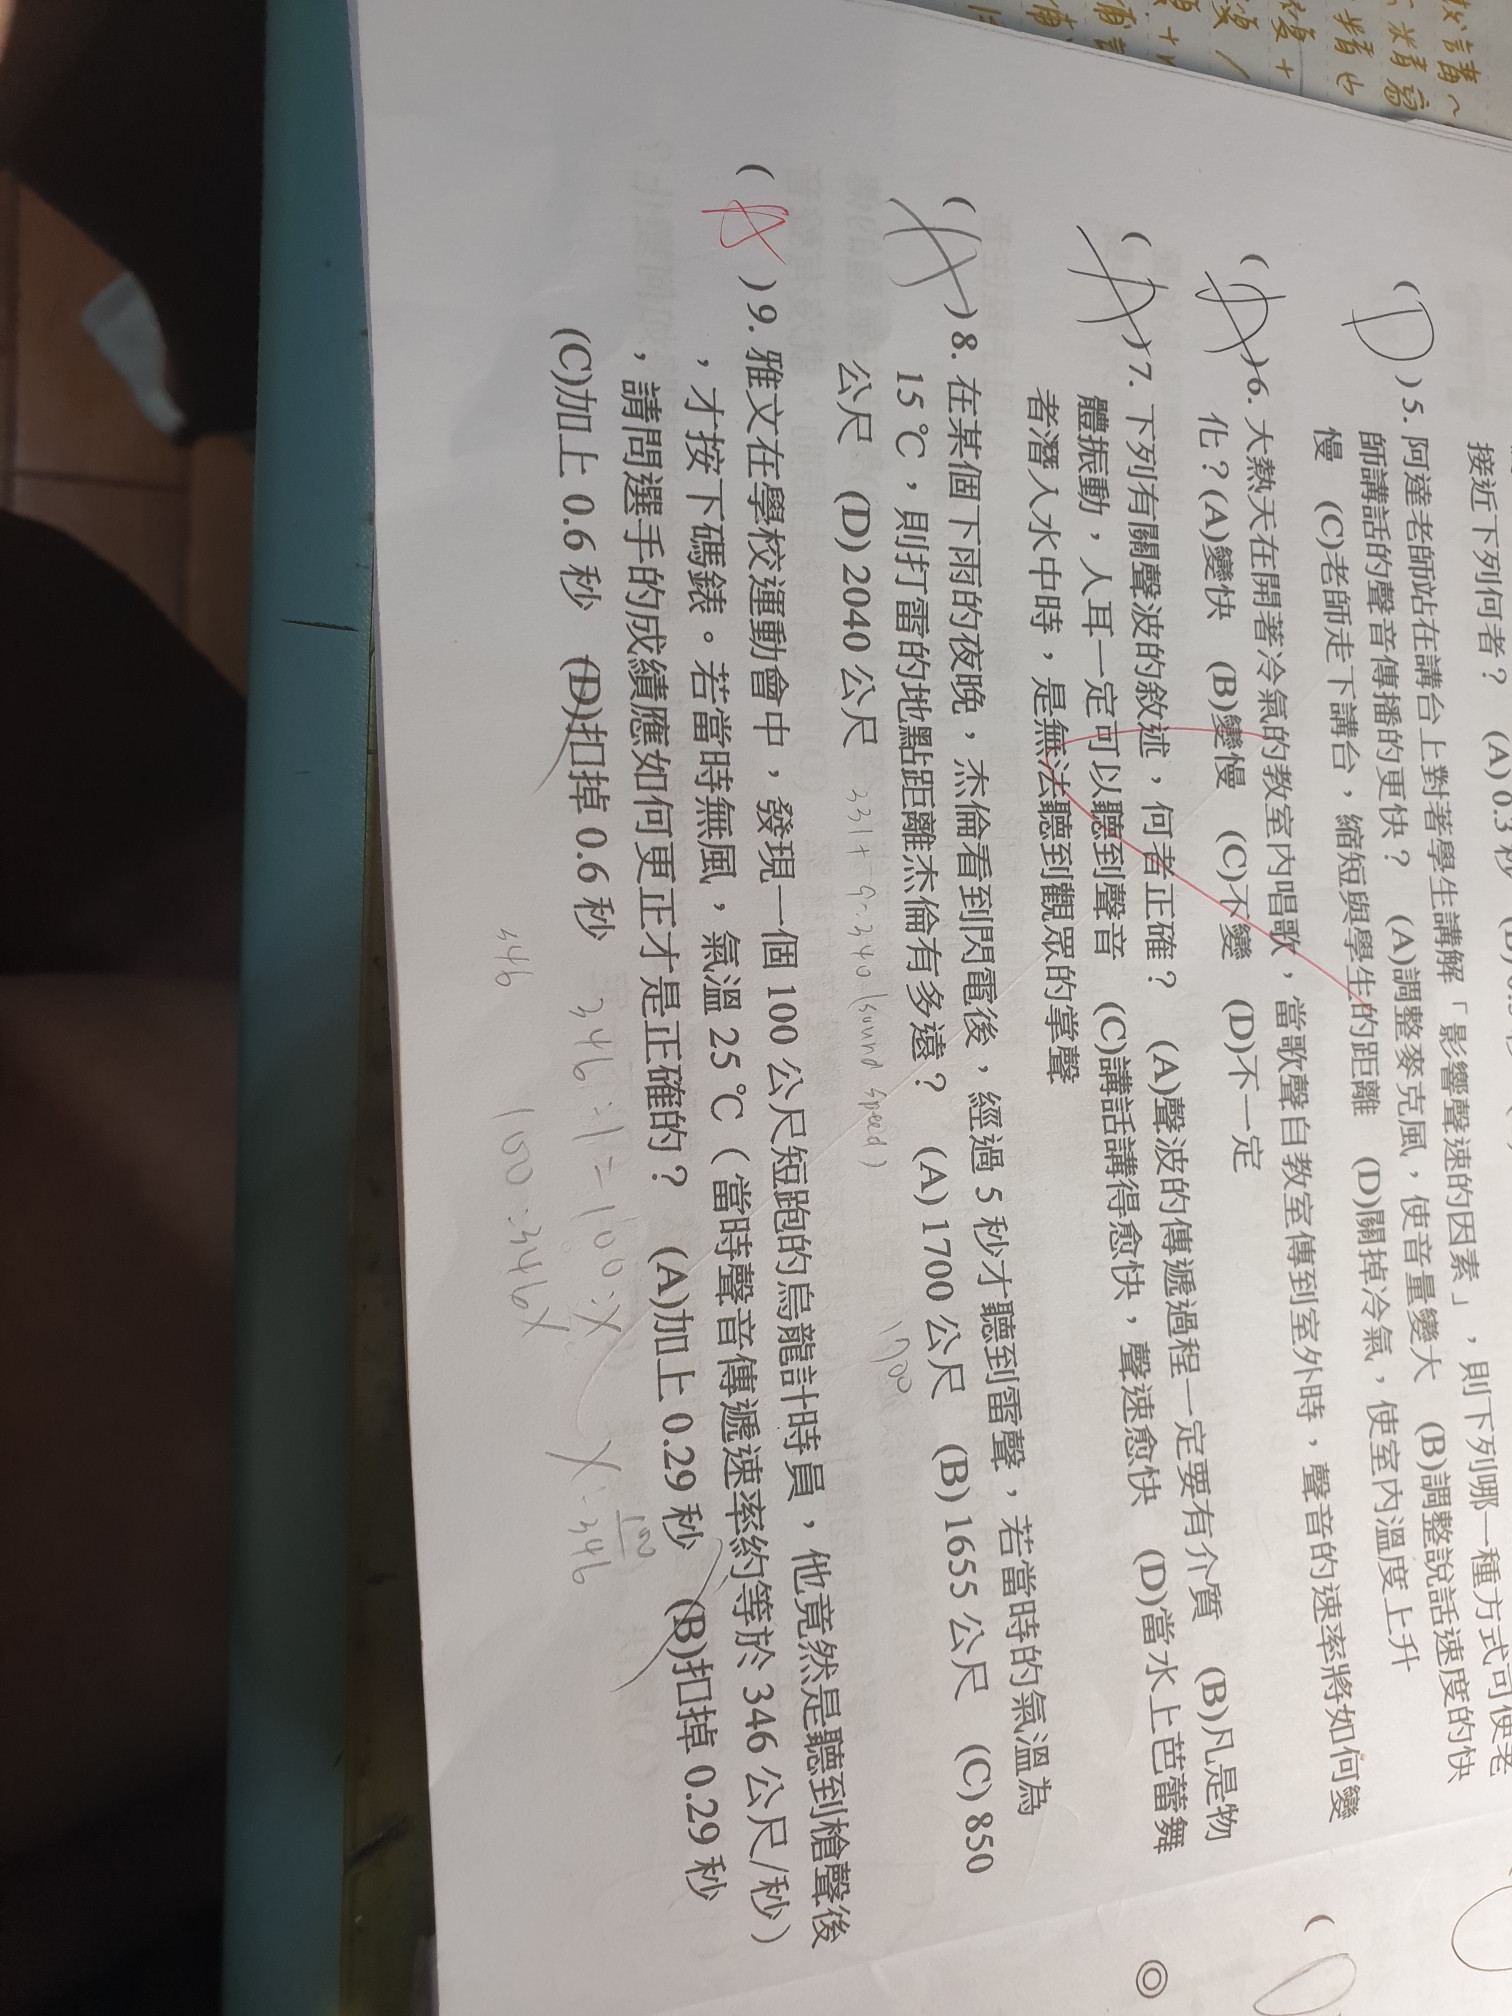 接近下列何者？ (A) 0.3 秒
(D) 5. 阿達老師站在講台上對著學生講解「影響聲速的因素」，則下列哪一種方式可使老
師講話的聲音傳播的更快？ (A)調整麥克風，使音量變大 (B)調整說話速度的快
慢 (C)老師走下講台，縮短與學生的距離 (D)關掉冷氣，使室內溫度上升
(A) 6. 大熱天在開著冷氣的教室內唱歌，當歌聲自教室傳到室外時，聲音的速率將如何變
化？(A)變快 (B)變慢 (C)不變 (D)不一定
(A) 7. 下列有關聲波的敘述，何者正確？ (A)聲波的傳遞過程一定要有介質 (B)凡是物
體振動，人耳一定可以聽到聲音 (C)講話講得愈快，聲速愈快 (D)當水上芭蕾舞
者潛入水中時，是無法聽到觀眾的掌聲
(A) 8. 在某個下雨的夜晚，杰倫看到閃電後，經過 5 秒才聽到雷聲，若當時的氣溫為
15 ℃，則打雷的地點距離杰倫有多遠？ (A) 1700 公尺 (B) 1655 公尺 (C) 850
公尺 (D) 2040 公尺
331+9=340 (sound speed) 1700
(A) 9. 雅文在學校運動會中，發現一個 100 公尺短跑的烏龍計時員，他竟然是聽到槍聲後
，才按下碼錶。若當時無風，氣溫 25 ℃（當時聲音傳遞速率約等於 346 公尺/秒）
，請問選手的成績應如何更正才是正確的？ (A)加上 0.29 秒 (B)扣掉 0.29 秒
(C)加上 0.6 秒 (D)扣掉 0.6 秒
346:1=100:X
346 100=346X
X=100/346